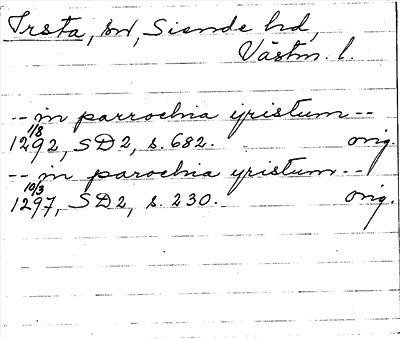 Irsta, sn, Siende hd,
Västm. l.
-- in parrochia yristum --
1/8
1292, SD2, s. 682. orig.
-- in parochia yristum --
10/3
1297, SD2, s. 230. orig.